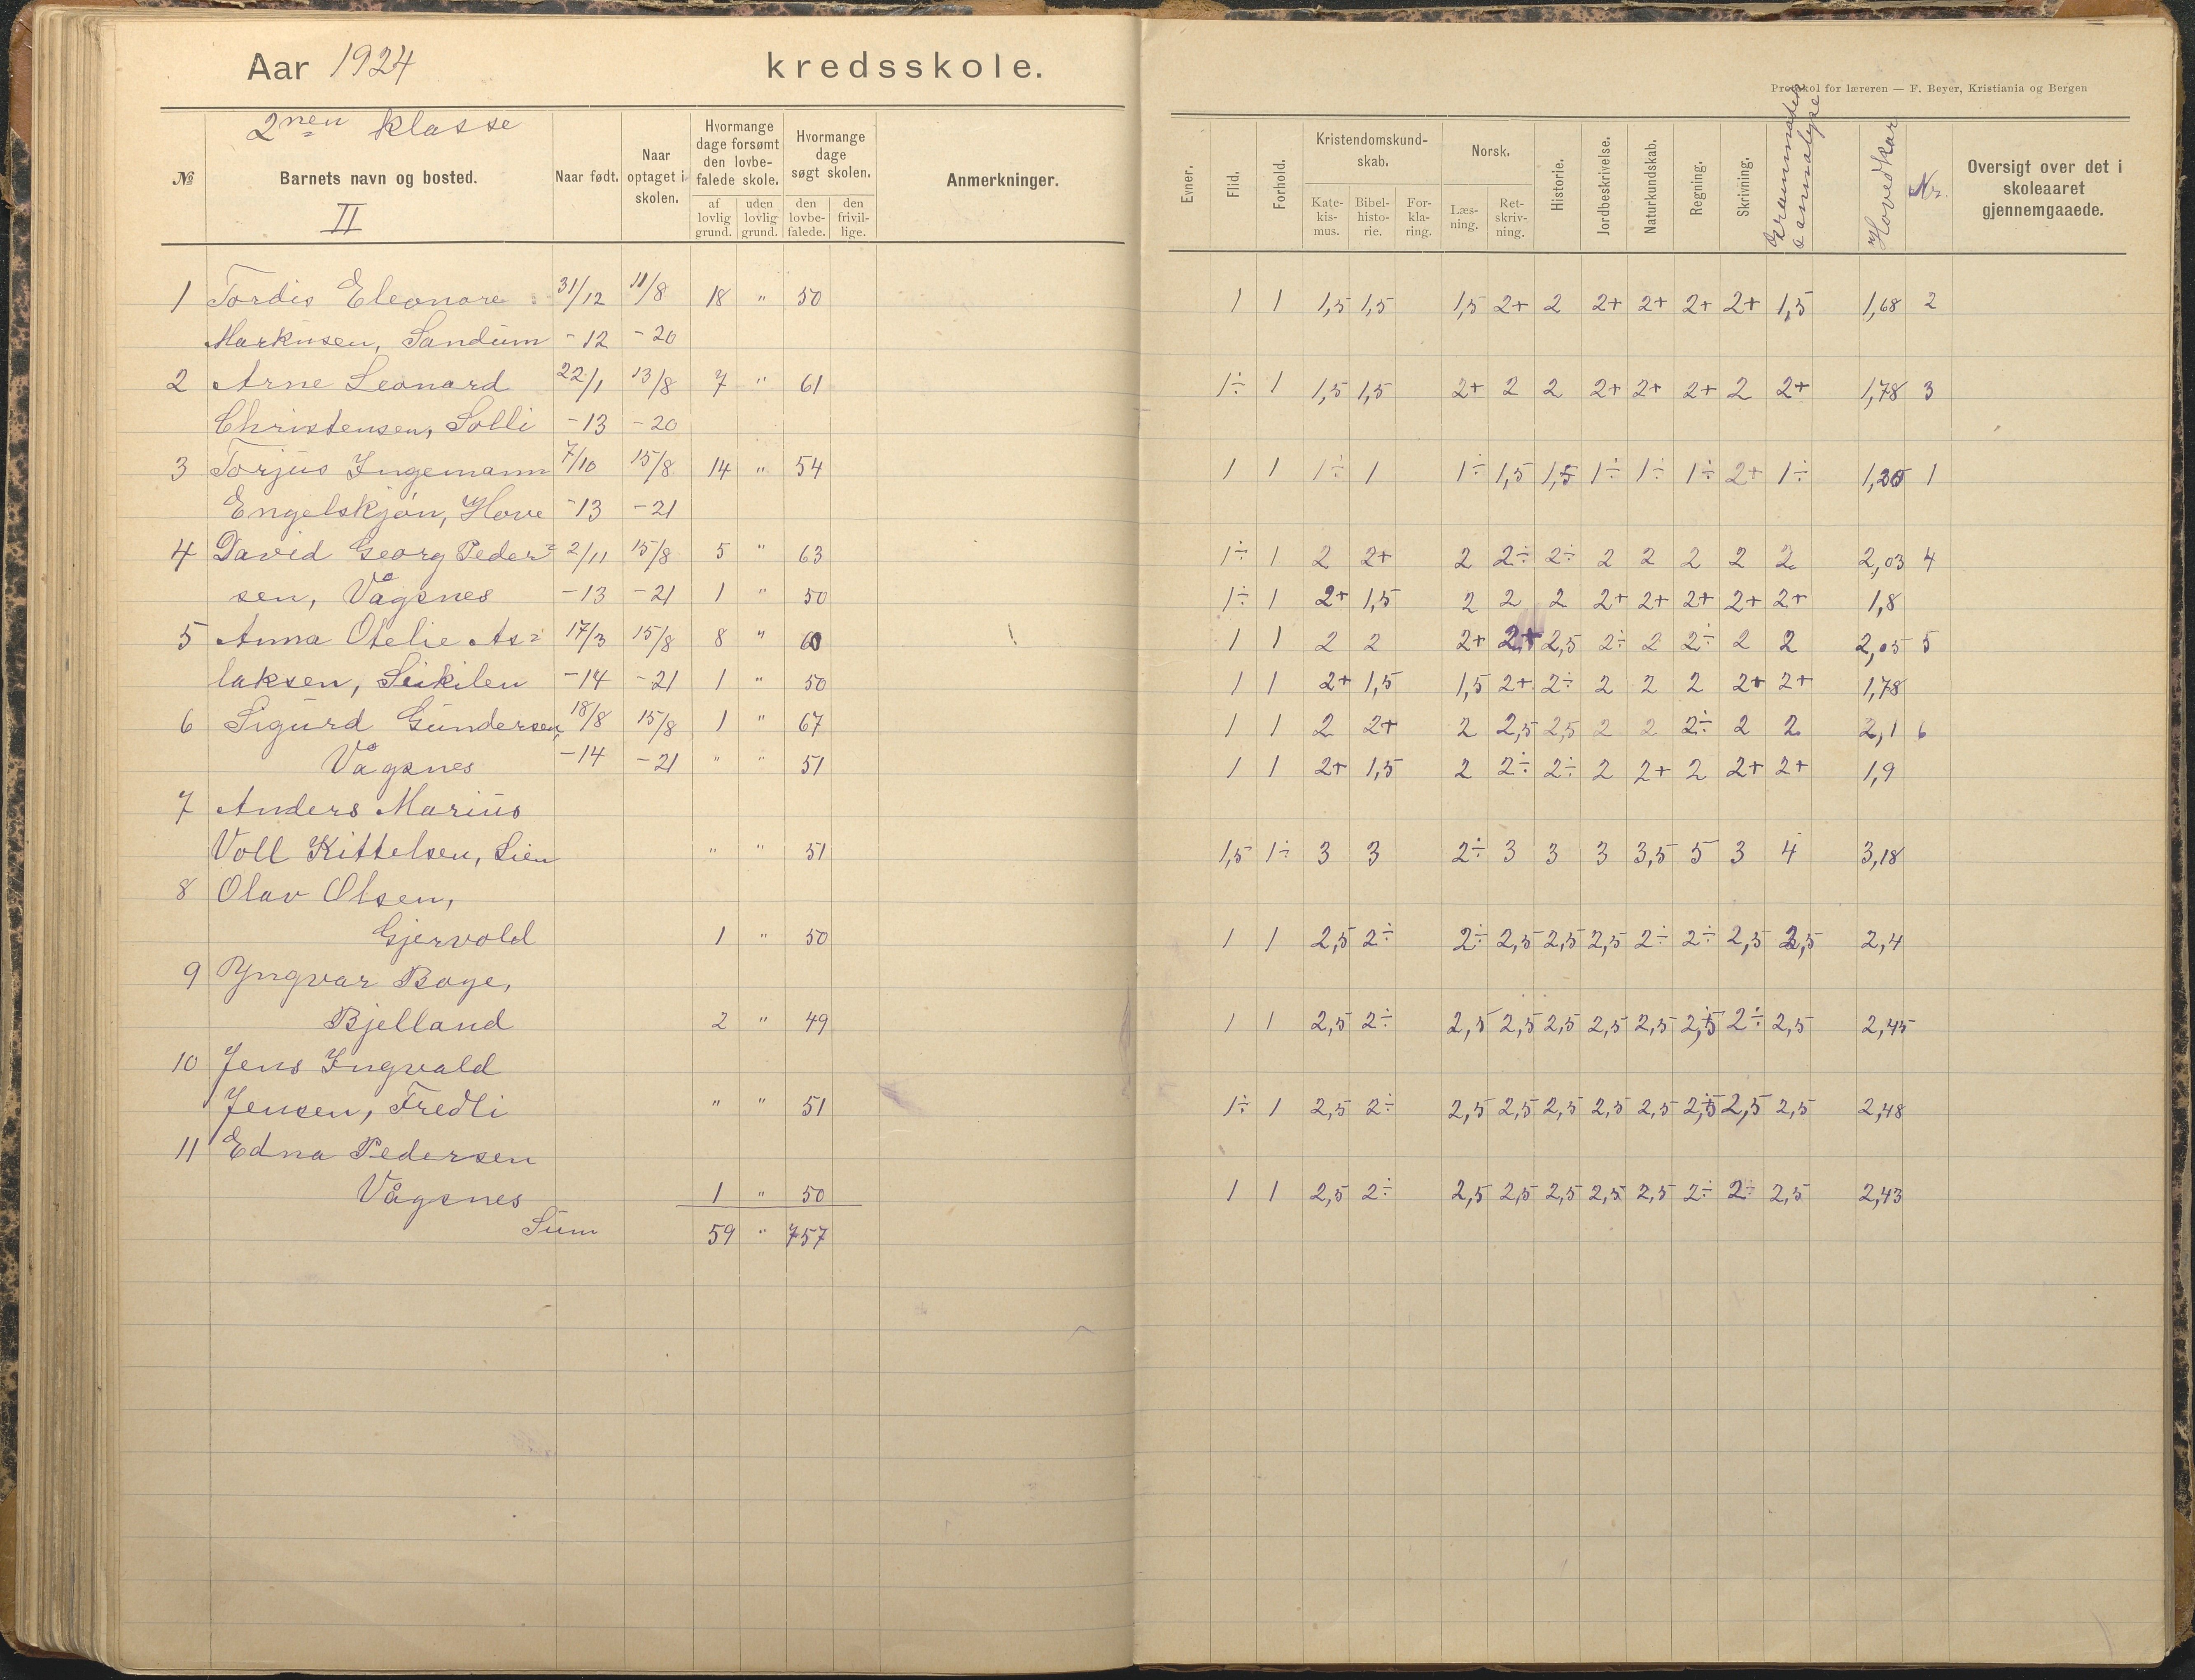 Aar 1924 kredsskole.
2nen klasse
№ Barnets navn og bosted. Naar født. Naar optaget i skolen. Hvormange dage forsømt den lovbefalede skole. Hvormange dage søgt skolen. Anmerkninger.
II
af lovlig grund. uden lovlig grund. den lovbefalede. den frivillige.
1 Tordis Eleonore 31/12 11/8 18 " 50
Markusen, Sandum -12 -20
2 Arne Leonard 22/1 13/8 7 " 61
Christensen, Solli -13 -20
3 Torjus Ingemann 7/10 15/8 14 " 54
Engelskjøn, Hove -13 -21
4 David Georg Peder= 2/11 15/8 5 " 63
sen, Vågsnes -13 -21 1 " 50
5 Anna Otelie As= 17/3 15/8 8 " 60
laksen, -14 -21 1 " 50
6 Sigurd Gundersen, 18/8 15/8 1 " 67
Vågsnes -14 -21 " " 51
7 Anders Marius
Voll Kittelsen, Lien " " 51
8 Olav Olsen,
Gjervold 1 " 50
9 Yngvar Boye,
Bjelland 2 " 49
10 Jens Ingvald
Jensen, Fredli " " 51
11 Edna Pedersen
Vågsnes 1 " 50
Sum 59 " 757
Protokol for læreren — F. Beyer, Kristiania og Bergen
Evner. Flid. Forhold. Kristendomskundskab. Norsk. Historie. Jordbeskrivelse. Naturkundskab. Regning. Skrivning. Grammatik & annalyse Hovedkar Nr. Oversigt over det i skoleaaret gjennemgaaede.
Katekismus. Bibelhistorie. Forklaring. Læsning. Retskrivning.
1 1 1,5 1,5 1,5 2+ 2 2+ 2+ 2+ 2+ 1,5 1,68 2
1÷ 1 1,5 1,5 2+ 2 2 2+ 2+ 2+ 2 2+ 1,78 3
1 1 1÷ 1 1÷ 1,5 1,5 1÷ 1÷ 1÷ 2+ 1÷ 1
1÷ 1 2 2+ 2 2÷ 2÷ 2 2 2 2 2 2,03 4
1÷ 1 2+ 1,5 2 2 2 2+ 2+ 2+ 2+ 2+ 1,8
1 1 2 2 2+ 2+ 2,5 2÷ 2 2÷ 2 2 2,05 5
1 1 2+ 1,5 1,5 2+ 2÷ 2 2 2 2+ 2+ 1,78
1 1 2 2+ 2 2,5 2,5 2 2 2÷ 2 2 2,1 6
1 1 2+ 1,5 2 2÷ 2÷ 2 2+ 2 2+ 2+ 1,9
1,5 1÷ 3 3 2÷ 3 3 3 3,5 5 3 4 3,18
1 1 2,5 2÷ 2÷ 2,5 2,5 2,5 2÷ 2÷ 2,5 2,5 2,4
1 1 2,5 2÷ 2,5 2,5 2,5 2,5 2,5 2,5 2÷ 2,5 2,45
1÷ 1 2,5 2÷ 2,5 2,5 2,5 2,5 2,5 2,5 2,5 2,5 2,48
1 1 2,5 2÷ 2,5 2,5 2,5 2,5 2,5 2÷ 2÷ 2,5 2,43